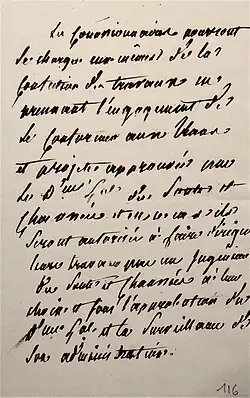 Les Concessionnaires pourront
se charger eux mêmes de la
Confection des travaux en
prenant l'engagement de
se conformer aux Plans
et projets approuvés par
le D.eur G.al des Ponts et
Chaussées et en ce cas ils
seront autorisés à faire
leurs travaux par un Ingénieur
des Ponts et Chaussées à leur
choix et sous l'approbation du
D.eur G.al et la Surveillance de
son administration.
116